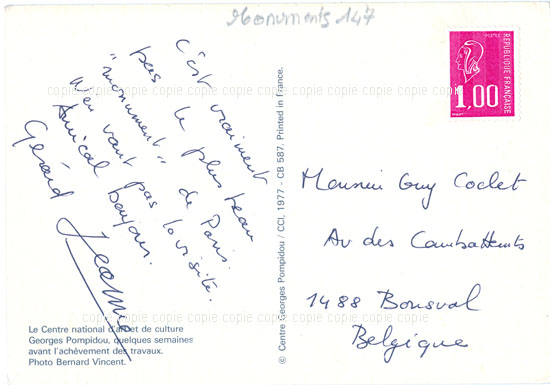 Monuments 147
C'est vraiment
pas le plus beau
"monument" de Paris.
N'en vaut pas la visite.
Amical bonjour.
Gérard Jeanne
Le Centre national d'art et de culture
Georges Pompidou, quelques semaines
avant l'achèvement des travaux.
Photo Bernard Vincent.
© Centre Georges Pompidou / CCI, 1977 - CB 587. Printed in France.
POSTES
REPUBLIQUE FRANÇAISE
1,00
Monsieur Guy Coclet
Av des Combattants
1488 Bousval
Belgique
copie copie copie copie copie copie copie copie copie copie copie copie
copie copie copie copie copie copie copie copie copie copie copie copie